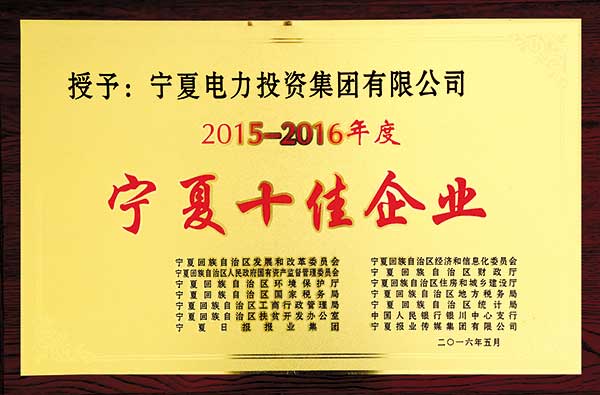 授予：宁夏电力投资集团有限公司
2015-2016年度
宁夏十佳企业
宁夏回族自治区发展和改革委员会
宁夏回族自治区人民政府国有资产监督管理委员会
宁夏回族自治区环境保护厅
宁夏回族自治区国家税务局
宁夏回族自治区工商行政管理局
宁夏回族自治区扶贫开发办公室
宁夏日报报业集团
宁夏回族自治区经济和信息化委员会
宁夏回族自治区财政厅
宁夏回族自治区住房和城乡建设厅
宁夏回族自治区地方税务局
宁夏回族自治区统计局
中国人民银行银川中心支行
宁夏报业传媒集团有限公司
二〇一六年五月